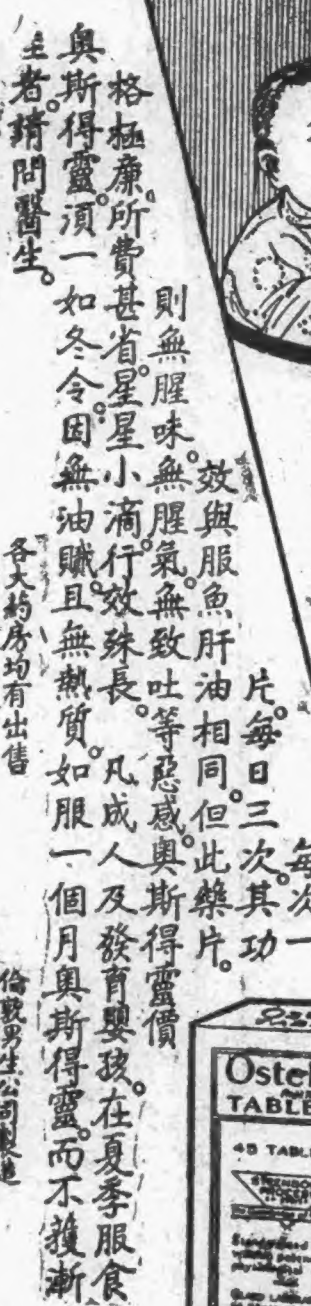 每次一
片。每日三次。其功
效與服魚肝油相同。但此藥片。
則無腥味。無腥氣。無致吐等惡感。奧斯得靈價
格極廉。所費甚省。星星小滴。行效殊長。凡成人及發育嬰孩。在夏季服食
奧斯得靈。須一如冬令。因無油膩。且無熱質。如服一個月奧斯得靈。而不獲漸
主者。請問醫生。
各大葯房均有出售
倫敦 公司製造
Oste
TABLE
45 TABL